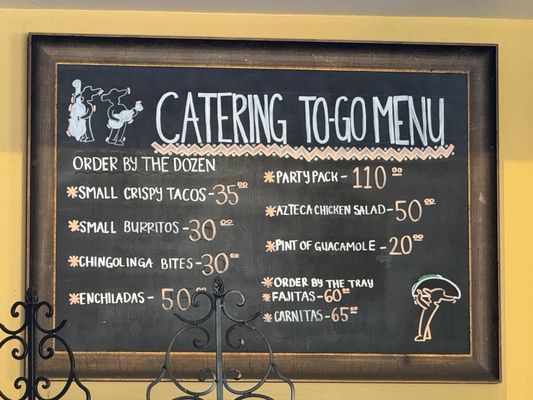 CATERING TO-GO MENU
ORDER BY THE DOZEN
*SMALL CRISPY TACOS-35.00
*SMALL BURRITOS-30.00
*CHINGOLINGA BITES-30.00
*ENCHILADAS-50.00
*PARTY PACK-110.00
*AZTECA CHICKEN SALAD-50.00
*PINT OF GUACAMOLE-20.00
*ORDER BY THE TRAY
*FAJITAS-60.00
*CARNITAS-65.00